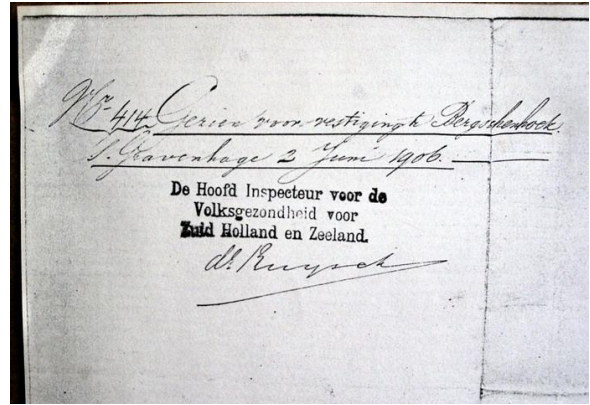 No 414. Gezien voor vestiging te Bergschenhoek.
s. Gravenhage 2 Juni 1906.
De Hoofd Inspecteur voor de
Volksgezondheid voor
Zuid Holland en Zeeland.
dr. Ruysch